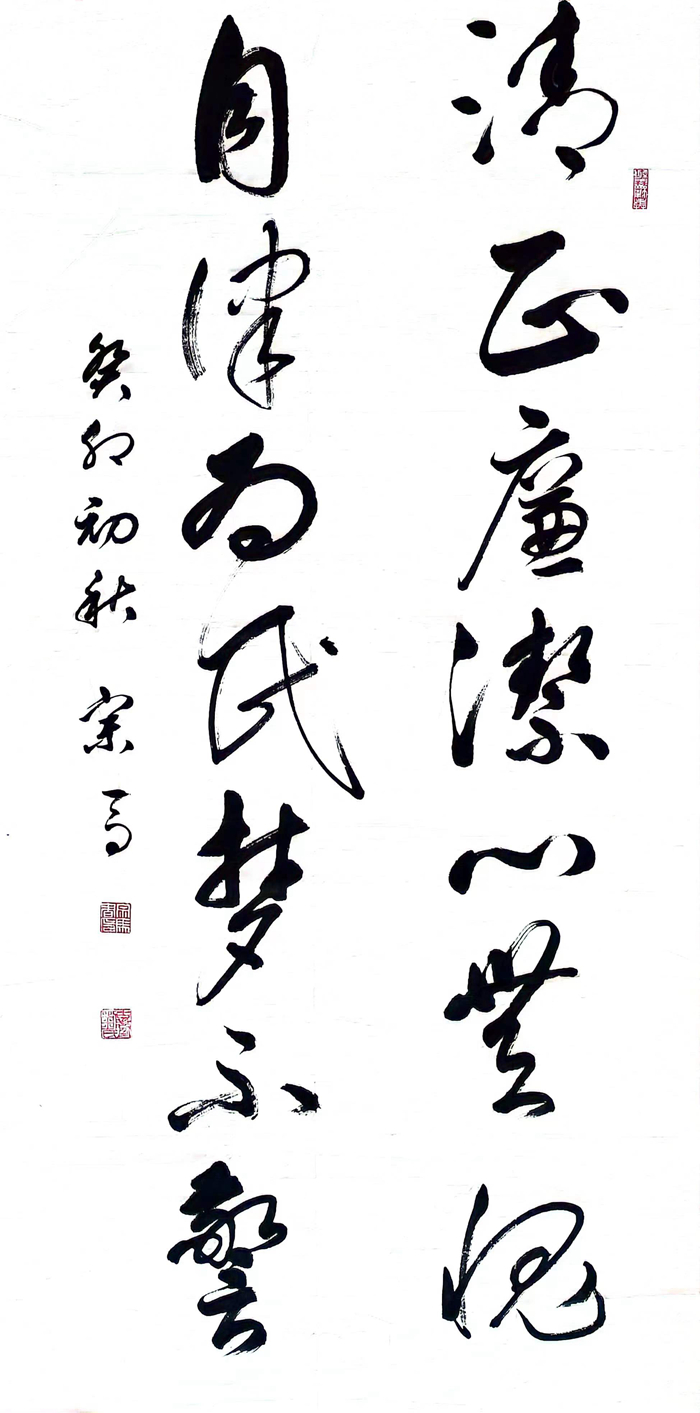 清正廉潔心無愧
自律为民梦不警
癸卯初秋 宗